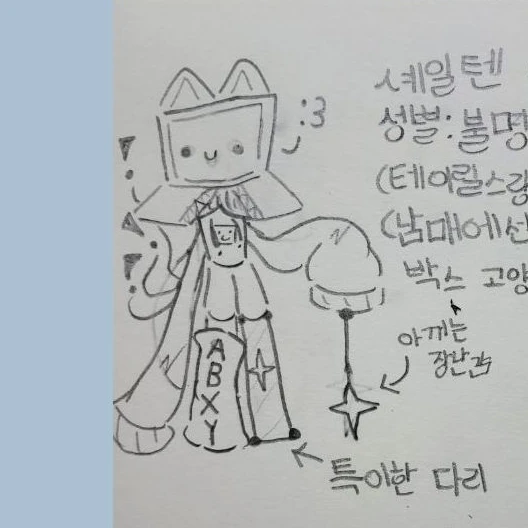 :3
세일텐
성별:불명
(테이릴스랑
(남매에선
박스 고양
아끼는
장난감
A
B
X
Y
특이한 다리